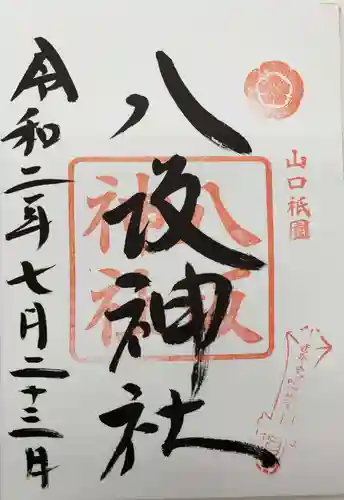 山口祇園
八坂神社
八坂神社
令和二年七月二十三日